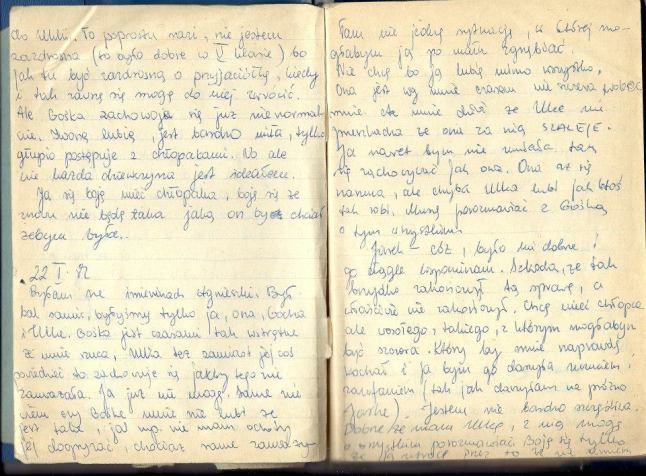 do Ulki. To poprostu nasi, nie jestem
zazdrosna (to było dobre w V klasie) bo
jak tu być zazdrosną o przyjaciółkę, kiedy
i tak zawsze się mogę do niej zwrócić.
Ale Gośka zachowuje się już nienormal-
nie. Iwonę lubię, jest bardzo miła, tylko
głupio postępuje z chłopakami. No ale
nie każda dziewczyna jest ideałem.
Ja się boję mieć chłopaka, boję się że
znów nie będę taka jaką on by chciał
żebym była.
22 I
Byłam na imieninach Agnieszki. Był
bal samic, byłyśmy tylko ja, ona, Gocha
i Ulka. Gośka jest czasami tak wstrętne
że mnie rzuca, Ulka też zamiast jej coś
powiedzieć to zachowuje się jakby tego nie
zauważała. Ja już nie mogę. Same nie
wiem czy Gośka mnie nie lubi że
jest taka, jak np. nie mam ochoty
jej dogryzać, chociaż same zauważy-
łam nie jedną sytuację, w której mo-
głabym ją po mału zgnębić.
Nie chcę bo ją lubię mimo wszystko.
Ona jest wg mnie czasem nie szczera wobec
mnie. Ale mnie dziwi że Ulce nie
przeszkadza że ona za nią SZALEJE.
Ja nawet bym nie umiała tak
się zachowywać jak ona. Ona aż się
narzuca, ale chyba Ulka lubi jak ktoś
tak robi. Muszę porozmawiać z Gośką
o tym wszystkim.
Jarek - cóż, było mi dobrze i
go ciągle wspominam. Szkoda, że tak
brzydko zakończył tą sprawę, a
właściwie nie zakończył. Chcę mieć chłopca
ale wesołego, takiego, z którym mogłabym
być szczera. Który by mnie naprawdę
kochał i ja bym go darzyła uczuciem i
zaufaniem (tak jak darzyłam na próżno
Jarka). Jestem nie bardzo szczęśliwa.
Dobrze że mam Ulkę, z nią mogę
o wszystkim porozmawiać. Boję się tylko
że ją utracę przez to że nie umiem